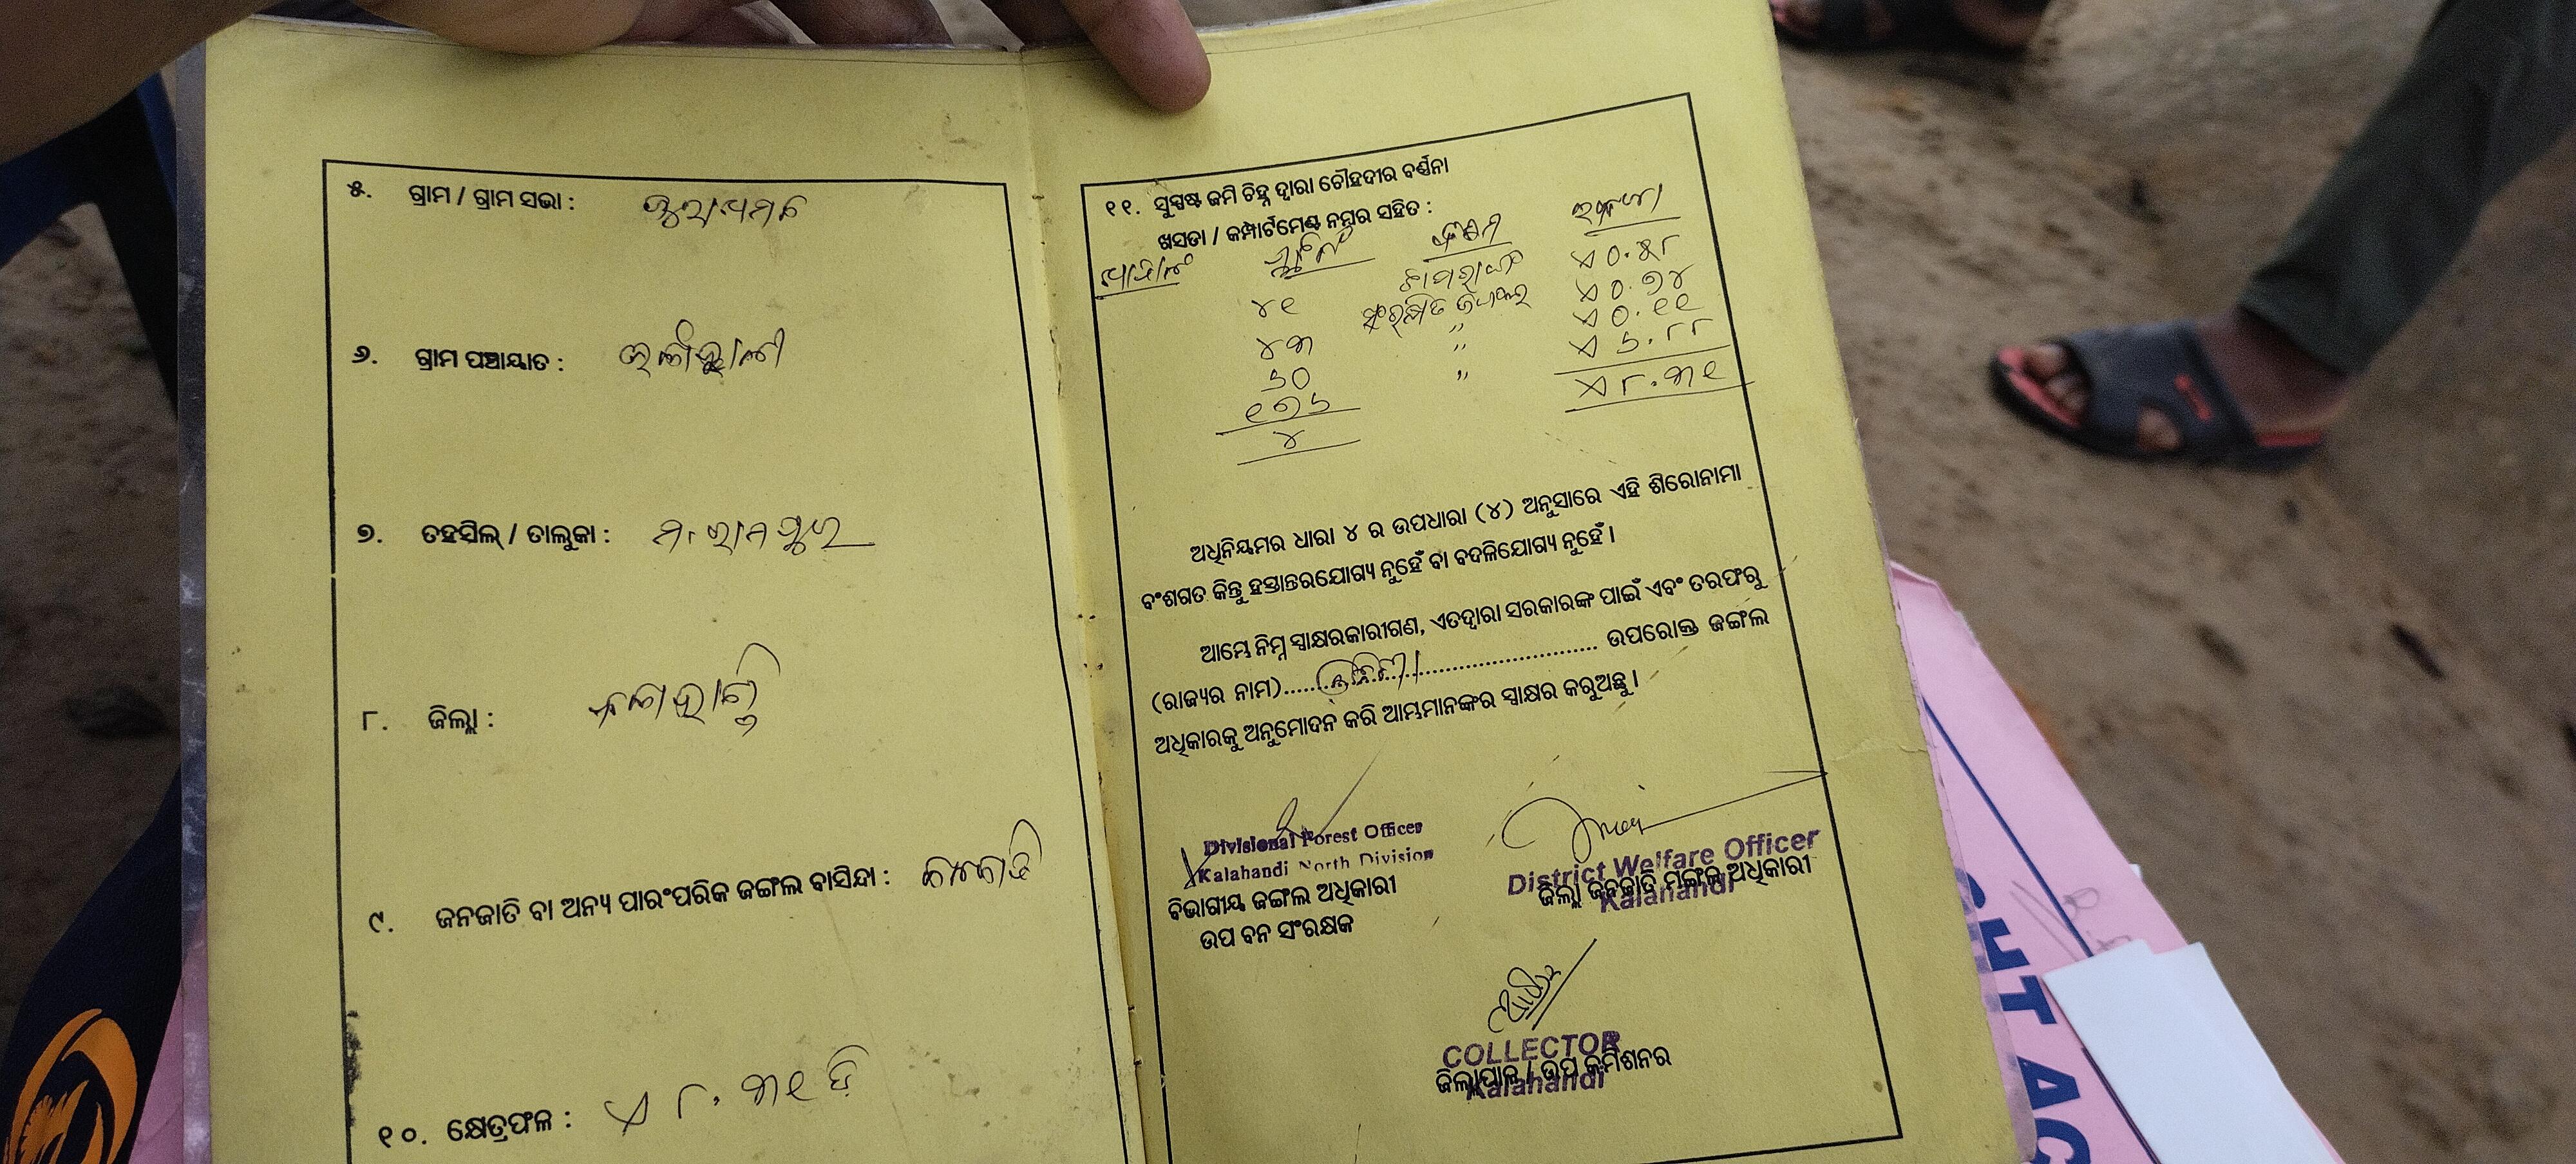 ୫. ଗ୍ରାମ / ଗ୍ରାମ ସଭା :
୬. ଗ୍ରାମ ପଞ୍ଚାୟାତ :
୭. ତହସିଲ୍ / ତାଲୁକା : ମ. ରାମପୁର
୮. ଜିଲ୍ଲା : କଳାହାଣ୍ଡି
୯. ଜନଜାତି ବା ଅନ୍ୟ ପାରଂପରିକ ଜଙ୍ଗଲ ବାସିନ୍ଦା :
୧୦. କ୍ଷେତ୍ରଫଳ : ଏ ୮.୩୧ ଡି
୧୧. ସୁସ୍ପଷ୍ଟ ଜମି ଚିହ୍ନ ଦ୍ୱାରା ଚୌହଦୀର ବର୍ଣ୍ଣନା
ଖସଡା / କମ୍ପାର୍ଟମେଣ୍ଟ ନମ୍ବର ସହିତ :
ପ୍ଲଟ ନଂ କିସମ ରକବା
୪୧ ଏ ୦.୫୮
ସଂରକ୍ଷିତ ଜଙ୍ଗଲ ଏ ୦.୭୪
୪୩ " ଏ ୦.୧୧
୬୦ " ଏ ୬.୮୮
୧୭୬ " ଏ ୮.୩୧
୪
ଅଧିନିୟମର ଧାରା ୪ ର ଉପଧାରା (୪) ଅନୁସାରେ ଏହି ଶିରୋନାମା
ବଂଶଗତ କିନ୍ତୁ ହସ୍ତାନ୍ତରଯୋଗ୍ୟ ନୁହେଁ ବା ବଦଳିଯୋଗ୍ୟ ନୁହେଁ ।
ଆମ୍ଭେ ନିମ୍ନ ସ୍ୱାକ୍ଷରକାରୀଗଣ, ଏତଦ୍ୱାରା ସରକାରଙ୍କ ପାଇଁ ଏବଂ ତରଫରୁ
(ରାଜ୍ୟର ନାମ)...... ଓଡ଼ିଶା ...... ଉପରୋକ୍ତ ଜଙ୍ଗଲ
ଅଧିକାରକୁ ଅନୁମୋଦନ କରି ଆମ୍ଭମାନଙ୍କର ସ୍ୱାକ୍ଷର କରୁଅଛୁ ।
Divisional Forest Officer
Kalahandi North Division
ବିଭାଗୀୟ ଜଙ୍ଗଲ ଅଧିକାରୀ
ଉପ ବନ ସଂରକ୍ଷକ
District Welfare Officer
ଜିଲ୍ଲା ଜନଜାତି ମଙ୍ଗଳ ଅଧିକାରୀ
Kalahandi
COLLECTOR
ଜିଲ୍ଲାପାଳ / ଉପ କମିଶନର
Kalahandi